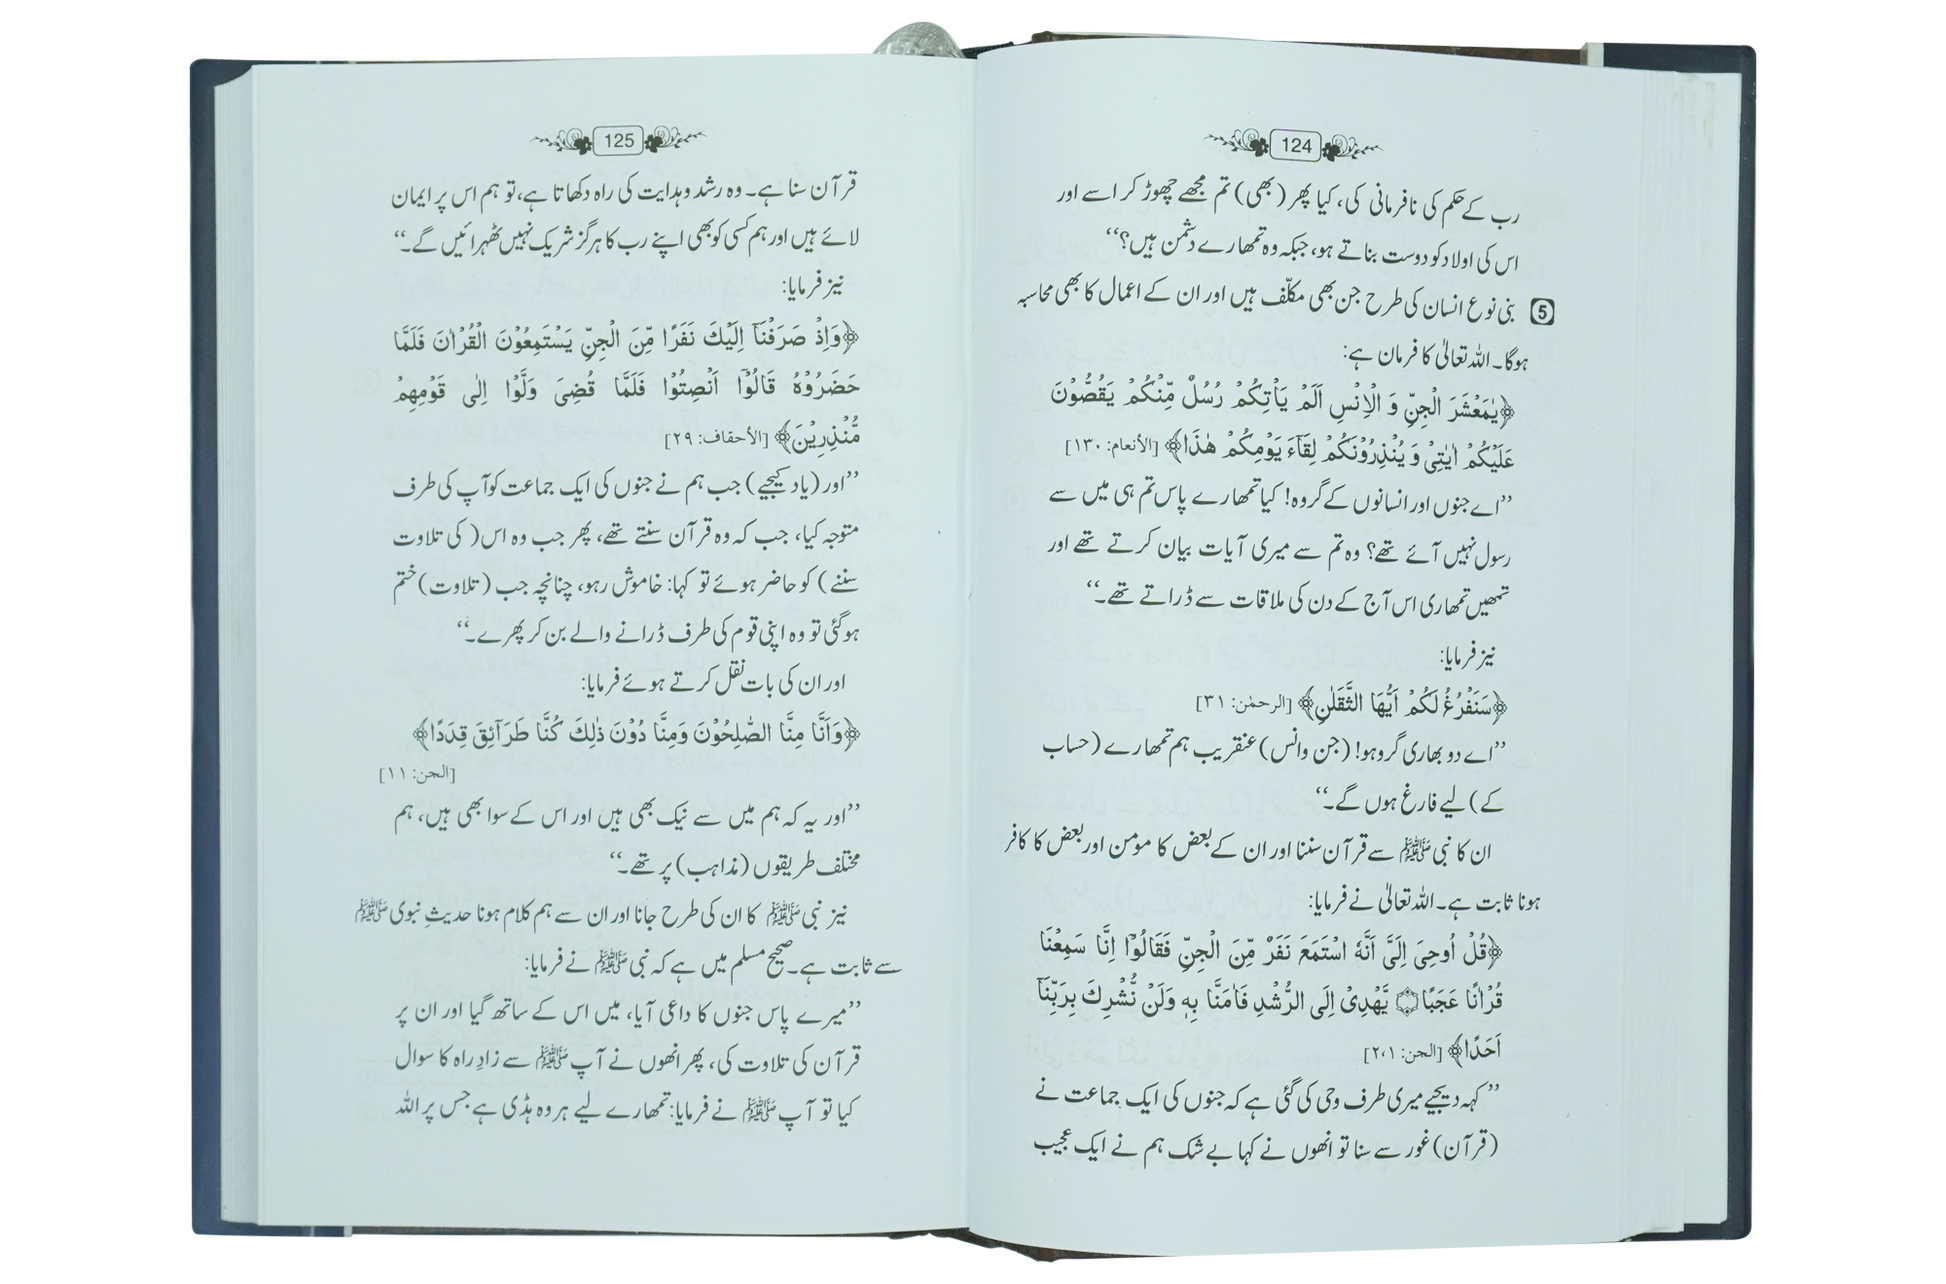 124
رب کے حکم کی نافرمانی کی، کیا پھر (بھی) تم مجھے چھوڑ کر اسے اور
اس کی اولاد کو دوست بناتے ہو، جبکہ وہ تمھارے دشمن ہیں؟‘‘
5 بنی نوع انسان کی طرح جن بھی مکلّف ہیں اور ان کے اعمال کا بھی محاسبہ
ہوگا۔ اللہ تعالیٰ کا فرمان ہے:
﴿يٰمَعْشَرَ الْجِنِّ وَ الْاِنْسِ اَلَمْ يَاْتِكُمْ رُسُلٌ مِّنْكُمْ يَقُصُّوْنَ
عَلَيْكُمْ اٰيٰتِيْ وَ يُنْذِرُوْنَكُمْ لِقَآءَ يَوْمِكُمْ هٰذَا﴾ [الأنعام: ١٣٠]
’’اے جنوں اور انسانوں کے گروہ! کیا تمھارے پاس تم ہی میں سے
رسول نہیں آئے تھے؟ وہ تم سے میری آیات بیان کرتے تھے اور
تمھیں تمھاری اس آج کے دن کی ملاقات سے ڈراتے تھے۔‘‘
نیز فرمایا:
﴿سَنَفْرُغُ لَكُمْ اَيُّهَا الثَّقَلٰنِ﴾ [الرحمٰن: ٣١]
’’اے دو بھاری گروہو! (جن وانس) عنقریب ہم تمھارے (حساب
کے) لیے فارغ ہوں گے۔‘‘
ان کا نبی ﷺ سے قرآن سننا اور ان کے بعض کا مومن اور بعض کا کافر
ہونا ثابت ہے۔ اللہ تعالیٰ نے فرمایا:
﴿قُلْ اُوحِیَ اِلَیَّ اَنَّهٗ اسْتَمَعَ نَفَرٌ مِّنَ الْجِنِّ فَقَالُوْٓا اِنَّا سَمِعْنَا
قُرْاٰنًا عَجَبًا ۞ يَّهْدِيْٓ اِلَى الرُّشْدِ فَاٰمَنَّا بِهٖ وَلَنْ نُّشْرِكَ بِرَبِّنَآ
اَحَدًا﴾ [الجن: ٢،١]
’’کہہ دیجیے میری طرف وحی کی گئی ہے کہ جنوں کی ایک جماعت نے
(قرآن) غور سے سنا تو انھوں نے کہا بے شک ہم نے ایک عجیب
125
قرآن سنا ہے۔ وہ رشد و ہدایت کی راہ دکھاتا ہے، تو ہم اس پر ایمان
لائے ہیں اور ہم کسی کو بھی اپنے رب کا ہرگز شریک نہیں ٹھہرائیں گے۔‘‘
نیز فرمایا:
﴿وَاِذْ صَرَفْنَآ اِلَيْكَ نَفَرًا مِّنَ الْجِنِّ يَسْتَمِعُوْنَ الْقُرْاٰنَ فَلَمَّا
حَضَرُوْهُ قَالُوْٓا اَنْصِتُوْا فَلَمَّا قُضِیَ وَلَّوْا اِلٰى قَوْمِهِمْ
مُّنْذِرِيْنَ﴾ [الأحقاف: ٢٩]
’’اور (یاد کیجیے) جب ہم نے جنوں کی ایک جماعت کو آپ کی طرف
متوجہ کیا، جب کہ وہ قرآن سنتے تھے، پھر جب وہ اس( کی تلاوت
سننے) کو حاضر ہوئے تو کہا: خاموش رہو، چنانچہ جب (تلاوت) ختم
ہوگئی تو وہ اپنی قوم کی طرف ڈرانے والے بن کر پھرے۔‘‘
اور ان کی بات نقل کرتے ہوئے فرمایا:
﴿وَاَنَّا مِنَّا الصّٰلِحُوْنَ وَمِنَّا دُوْنَ ذٰلِكَ كُنَّا طَرَآئِقَ قِدَدًا﴾
[الجن: ١١]
’’اور یہ کہ ہم میں سے نیک بھی ہیں اور اس کے سوا بھی ہیں، ہم
مختلف طریقوں (مذاہب) پر تھے۔‘‘
نیز نبی ﷺ کا ان کی طرح جانا اور ان سے ہم کلام ہونا حدیثِ نبوی ﷺ
سے ثابت ہے۔ صحیح مسلم میں ہے کہ نبی ﷺ نے فرمایا:
’’میرے پاس جنوں کا داعی آیا، میں اس کے ساتھ گیا اور ان پر
قرآن کی تلاوت کی، پھر انھوں نے آپ ﷺ سے زادِ راہ کا سوال
کیا تو آپ ﷺ نے فرمایا: تمھارے لیے ہر وہ ہڈی ہے جس پر اللہ